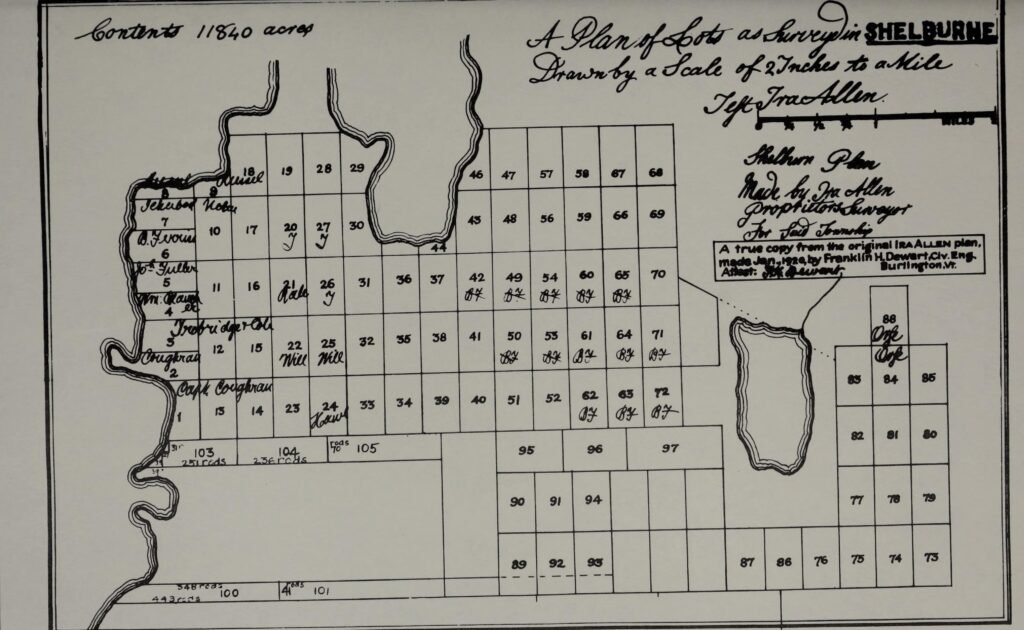 Contents 11840 acres
A Plan of Lots as Surveyed in SHELBURNE
Drawn by a Scale of 2 Inches to a Mile
Test Ira Allen
MILES
Shelburn Plan
Made by Ira Allen
Proprietors Surveyor
For Said Township
A true copy from the original IRA ALLEN plan,
made Jan., 1920, by Franklin H. Dewart, Civ. Eng.
Attest: Burlington, Vt.
18 19 28 29 46 47 57 58 67 68
8 9
7 10 17 20 27 30 45 48 56 59 66 69
J J
44
6
Jos. Fuller
5 11 16 21 26 31 36 37 42 49 54 60 65 70
J
4
Trobridge & Cole
3 12 15 22 25 32 35 38 41 50 53 61 64 71
Will Will
Coughran
2
Capt. Coughran
1 13 14 23 24 33 34 39 40 51 52 62 63 72
103 104 rods 70 105
251 rods 236 rods
95 96 97
90 91 94
89 92 93
87 86 76 75 74 73
88
83 84 85
82 81 80
77 78 79
348 rods 100 101
443 rods